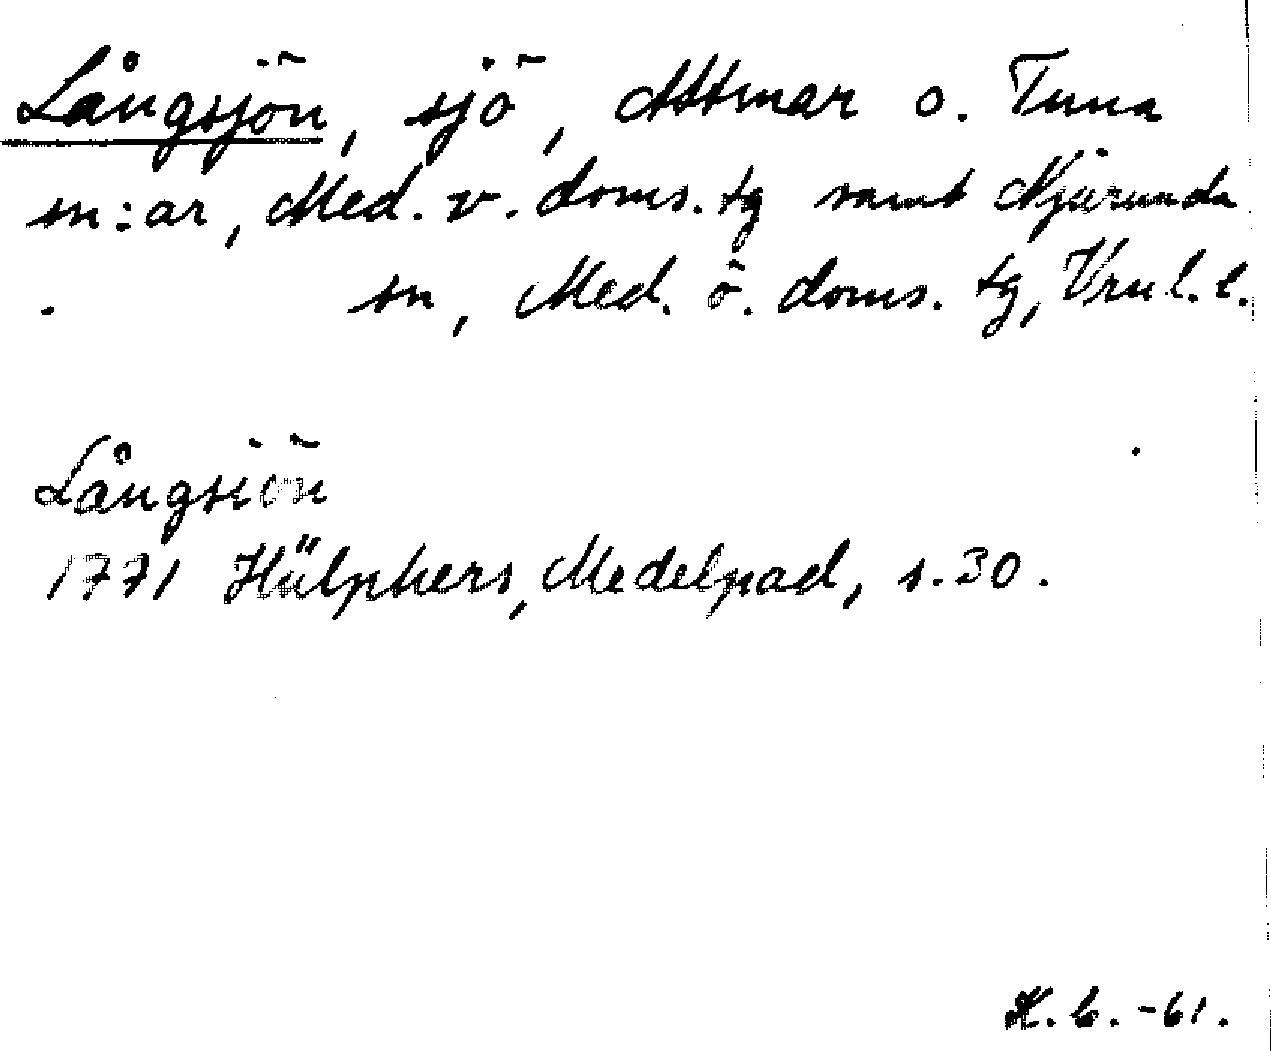 Långsjön, sjö, Attmar o. Tuna
sn:ar, Med. v. doms. tg samt Njurunda
sn, Med. ö. doms. tg, Vrnl. l.
Långsiön
1771 Hülphers, Medelpad, s. 30.
K. G. -61.